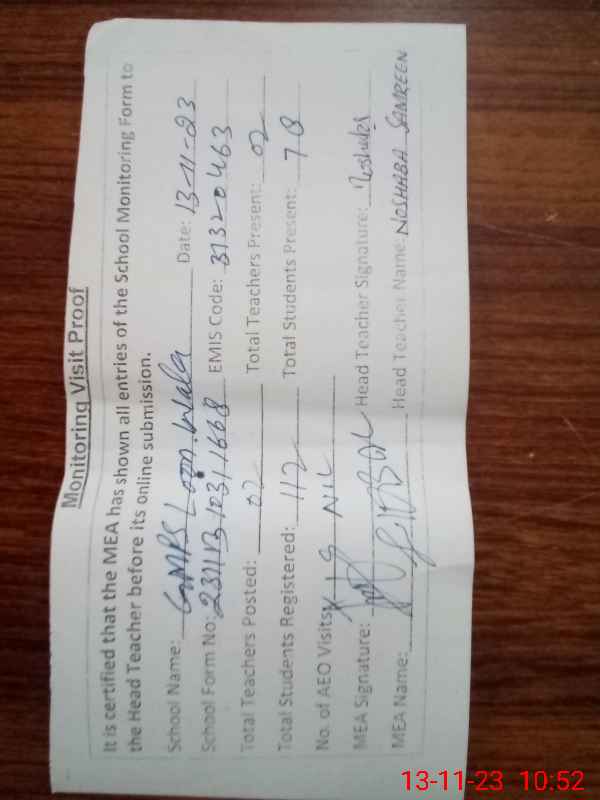 Monitoring Visit Proof
It is certified that the MEA has shown all entries of the School Monitoring Form to
the Head Teacher before its online submission.
School Name: GMPS Loon Wala Date: 13-11-23
School Form No: EMIS Code: 31320463
Total Teachers Posted: 02 Total Teachers Present: 02
Total Students Registered: 112 Total Students Present: 78
No. of AEO Visits: NIL
MEA Signature: Head Teacher Signature:
MEA Name: Head Teacher Name: NOSHABA SAMREEN
13-11-23 10:52